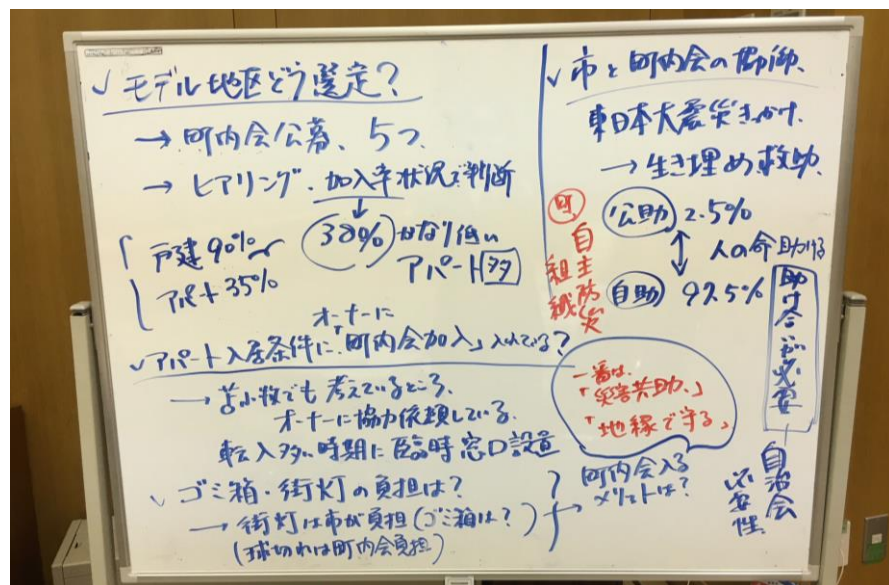 ✓ モデル地区どう選定?
→ 町内会公募、5つ
→ ヒアリング、加入率状況で判断
戸建90%
アパート35%
380% かなり低い
アパート多
オーナーに
✓ アパート入居条件に「町内会加入」入れている?
→ 苫小牧でも考えているところ、
オーナーに協力依頼している。
転入多い時期に臨時窓口設置
✓ ゴミ箱・街灯の負担は?
→ 街灯は市が負担(ゴミ箱は?)
(球切れは町内会負担)
→ 町内会入る
メリットは?
✓ 市と町内会の協働、
東日本大震災きっかけ、
→ 生き埋め救助、
公助 2.5%
↕ 人の命助ける
自助 97.5%
町、
自主防災
組織
助け合いが必要
自治会
必要性
一番は、
「災害共助、」
「地縁で守る」